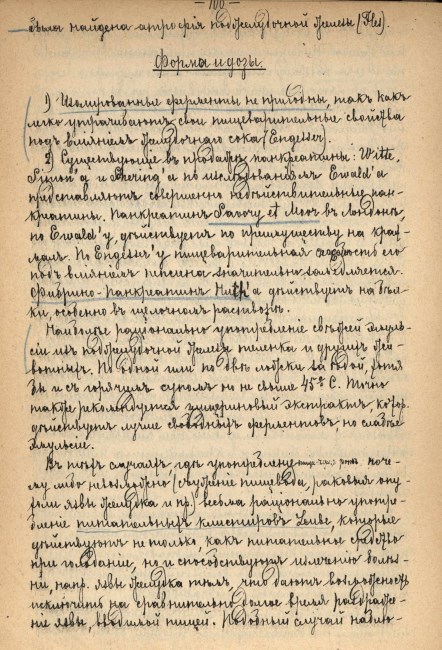 — 100 —
была найдена атрофія поджелудочной железы (Fles).
Форма и дозы.
1) Изолированные ферменты не пригодны, такъ какъ
легко утрачиваютъ свои пищеварительные свойства
подъ вліяніемъ желудочнаго сока (Engesser).
2) Существующіе въ продажѣ панкреатины: Witte,
Simon'a и Schering'a по изслѣдованіямъ Ewald'a
представляются совершенно недѣйствительными пан-
креатины. Панкреатинъ Savory et Moor въ Лондонѣ,
по Ewald'у, дѣйствуетъ по преимуществу на крах-
малъ. По Engesser'у пищеварительная способность его
подъ вліяніемъ пепсина значительно замедляется.
Фибрино-панкреатинъ дѣйствуетъ на бѣл-
ки, особенно въ щелочномъ растворѣ.
Наиболѣе раціонально употребленіе свѣжей эмуль-
сіи изъ поджелудочной железы теленка и другихъ жи-
вотныхъ. По одной или по двѣ ложки за ѣдой, хотя
бы и съ горячимъ супомъ но не свыше 45° C. Точно
также рекомендуется глицериновый экстрактъ, котор.
дѣйствуетъ лучше свободныхъ ферментовъ, но слабѣе
эмульсіи.
Въ тѣхъ случаяхъ, гдѣ употребленіе пищи черезъ ротъ поче-
му либо невозможно (съуженіе пищевода, раковыя опу-
холи язвы желудка и пр.) весьма раціонально употре-
бленіе питательныхъ клистировъ Leube, которые
дѣйствуютъ не только, какъ питательное средство
при голоданіи, но и способствуютъ излеченію болѣз-
ни, напр. язвы желудка тѣмъ, что даютъ возможность
исключить на сравнительно долгое время раздраже-
ніе язвы, вводимой пищей. Подобный случай наблю-